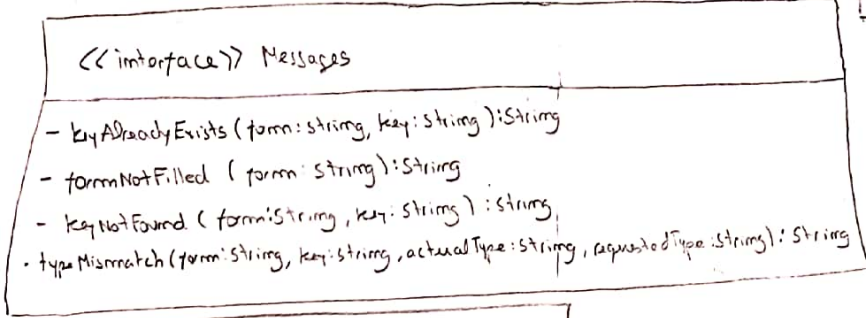 <<interface>> Messages
- keyAlreadyExists (form: string, key: string): String
- formNotFilled (form: string): String
- keyNotFound (form: String, key: String): string
- typeMismatch (form: String, key: string, actualType: String, requestedType: String): String